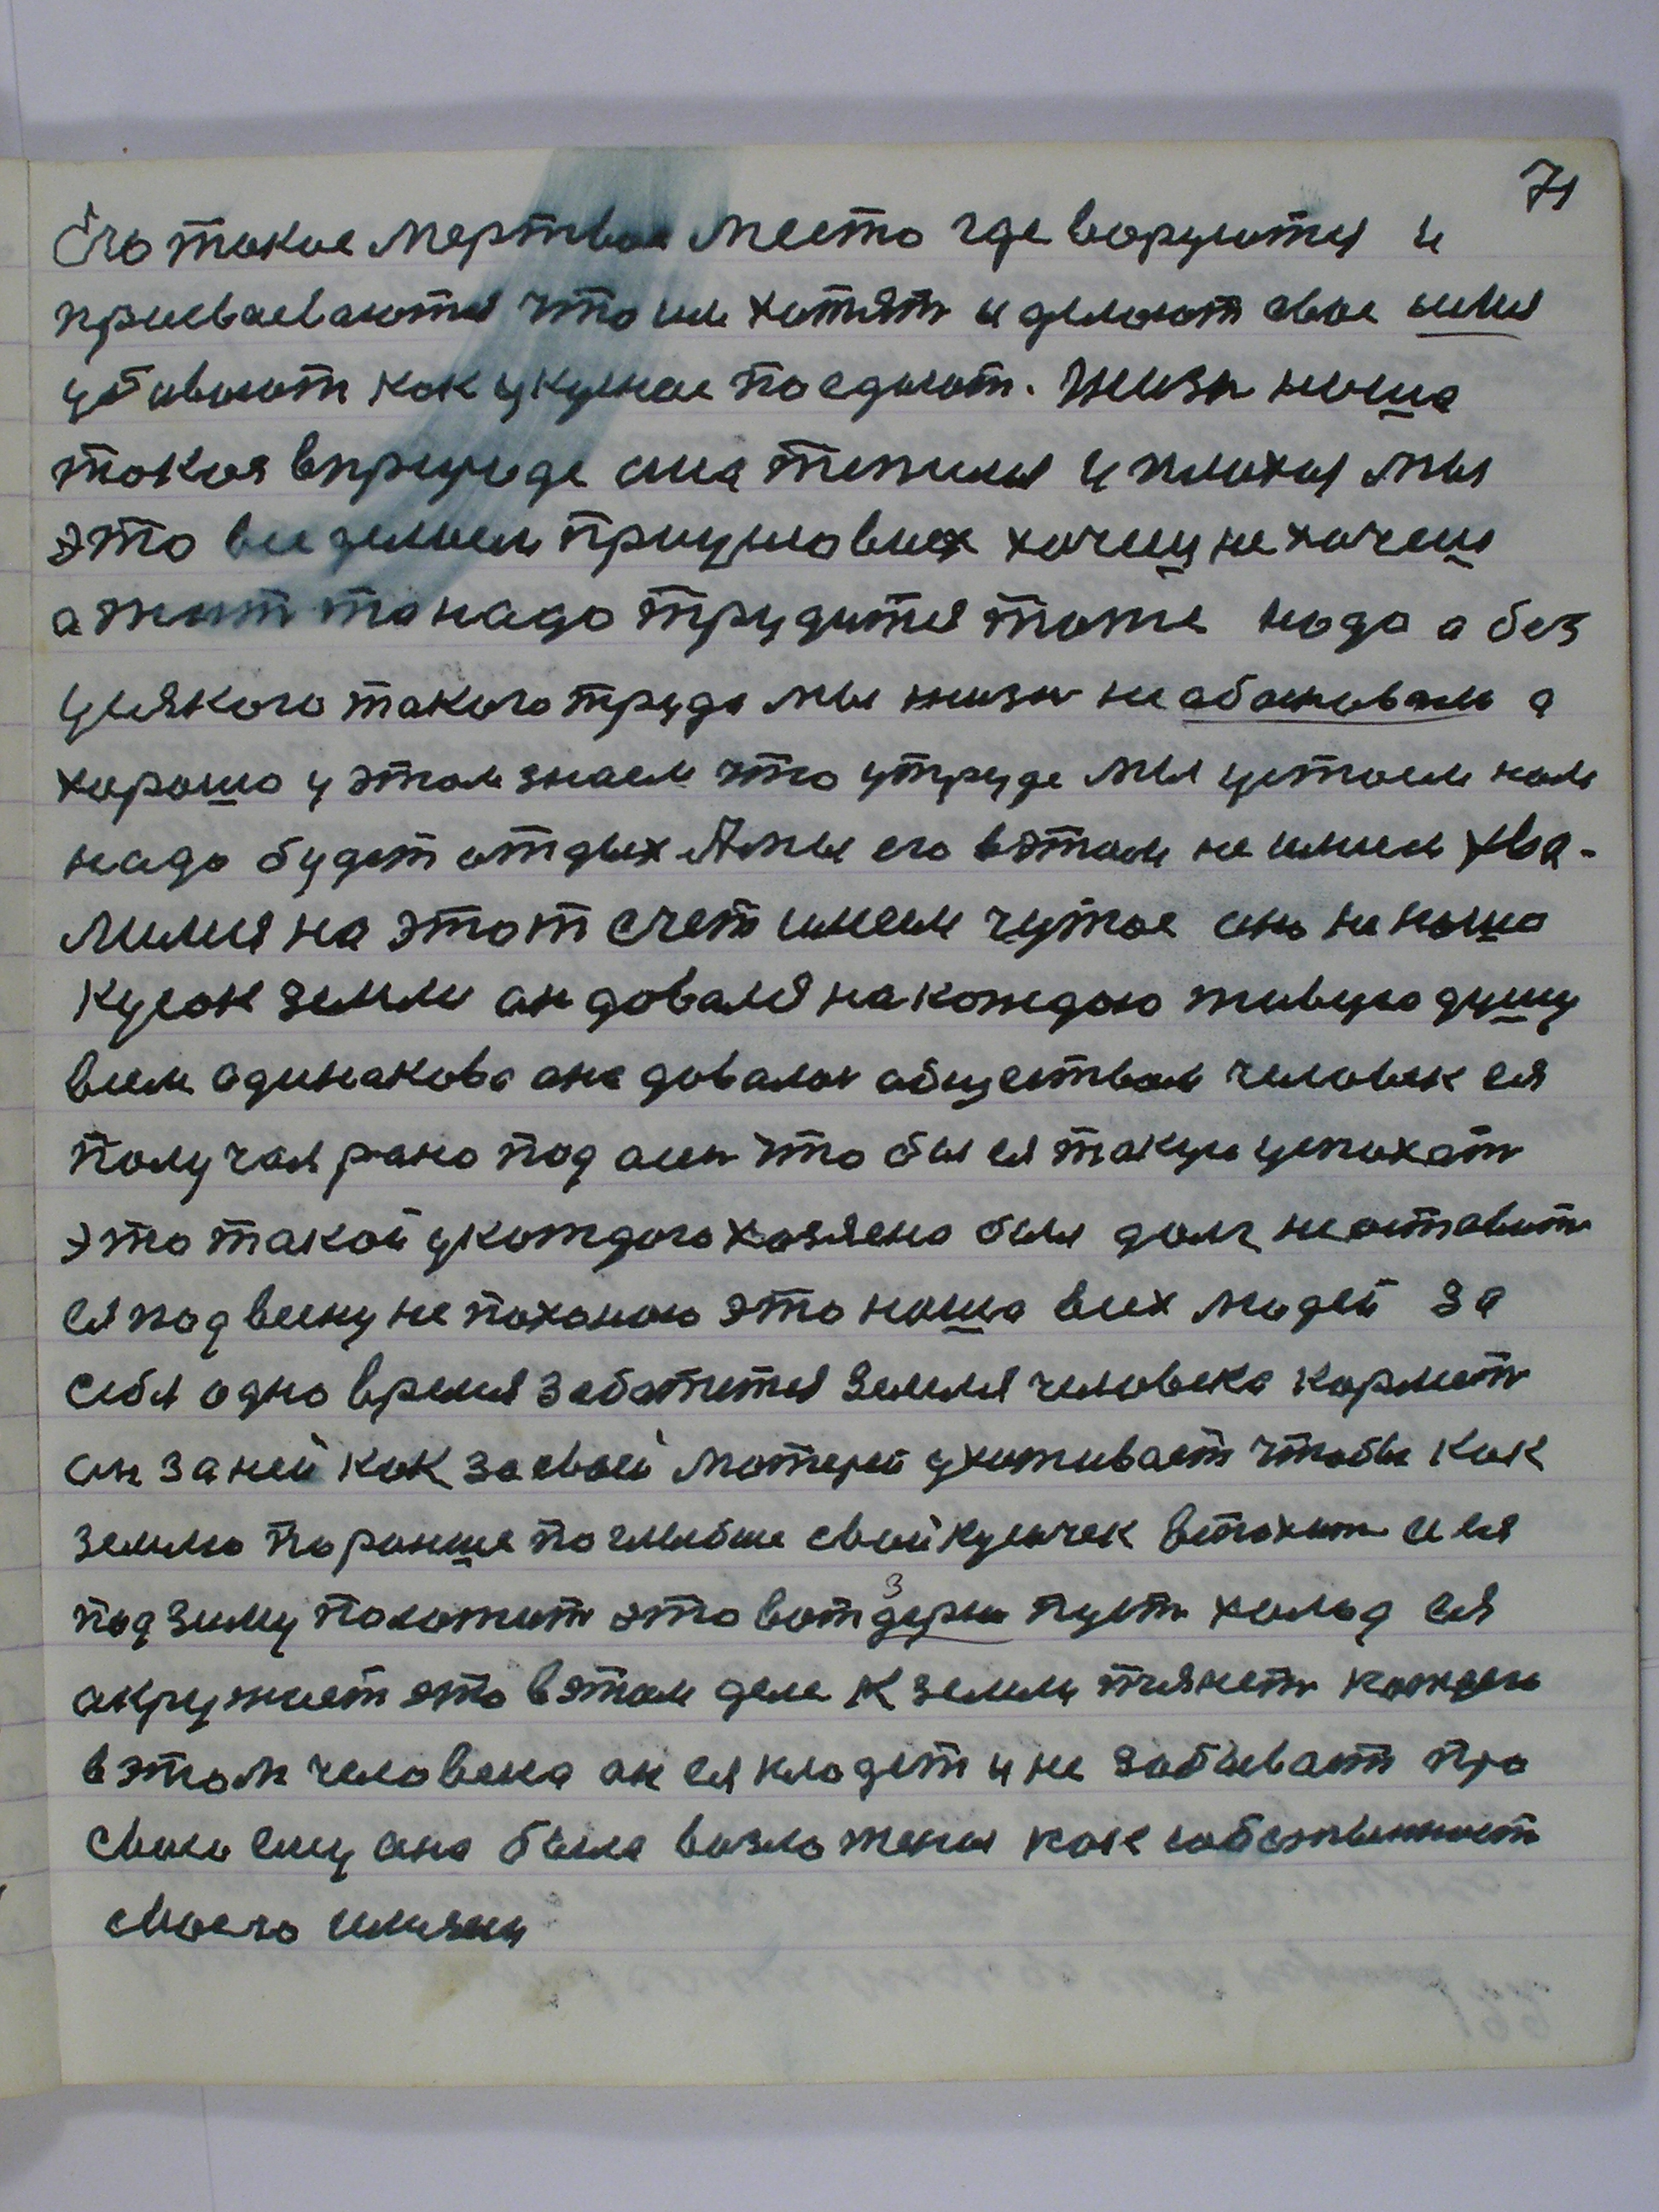 71
Его такое мертвое место где воруются и
присваеваются что им хотят и делают свое имя
убивают как у кулное поедают. Жизн наша
такая в природе она тепилая и плохая мы
это все делаем при условиях хочеш не хочеш
а жит то надо трудится тоже надо а без
усякого такого труда мы жизн не обосновали а
хорошо у этом знаем что у труде мы устаем нам
надо будет отдых А мы его в этом не имеим хва-
лимся на этот счет имеем чутое оно не наша
кусок земли он довался на кождою живую душу
всем одинаково она довалас обществом человек ея
получал рано под осен что бы ея такую успохат
это такой у кождого хозяено был долг не оставит
ея под весну не поханою это наша всех людей за
себя одно время заботится земля человека кормит
он за ней как за своей матерей ухоживает чтобы как
землю пораньше поглыбше свой кусычек вспохат и ея
под зиму положит это вот здерш пуст холод ея
окружает это в этом деле к земли тиянет каждого
в этом человека он ея кладет и не забывает про
свою ему она была возложеная как собственност
своего имяни